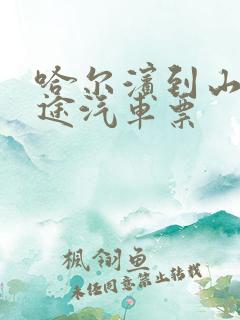 哈尔滨到山
途汽车票
枫翎鱼
未经同意禁止转载